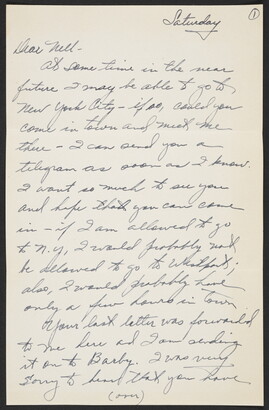 Saturday
1
Dear Nell-
At some time in the near
future I may be able to go to
New York City - if so, could you
come in town and meet me
there - I can send you a
telegram as soon as I know.
I want so much to see you
and hope that you can come
in - if I am allowed to go
to N.Y, I would probably not
be allowed to go to Westport;
also, I would probably have
only a few hours in town
Your last letter was forwarded
to me here and I am sending
it on to Barby. I was very
sorry to hear that you have
(over)